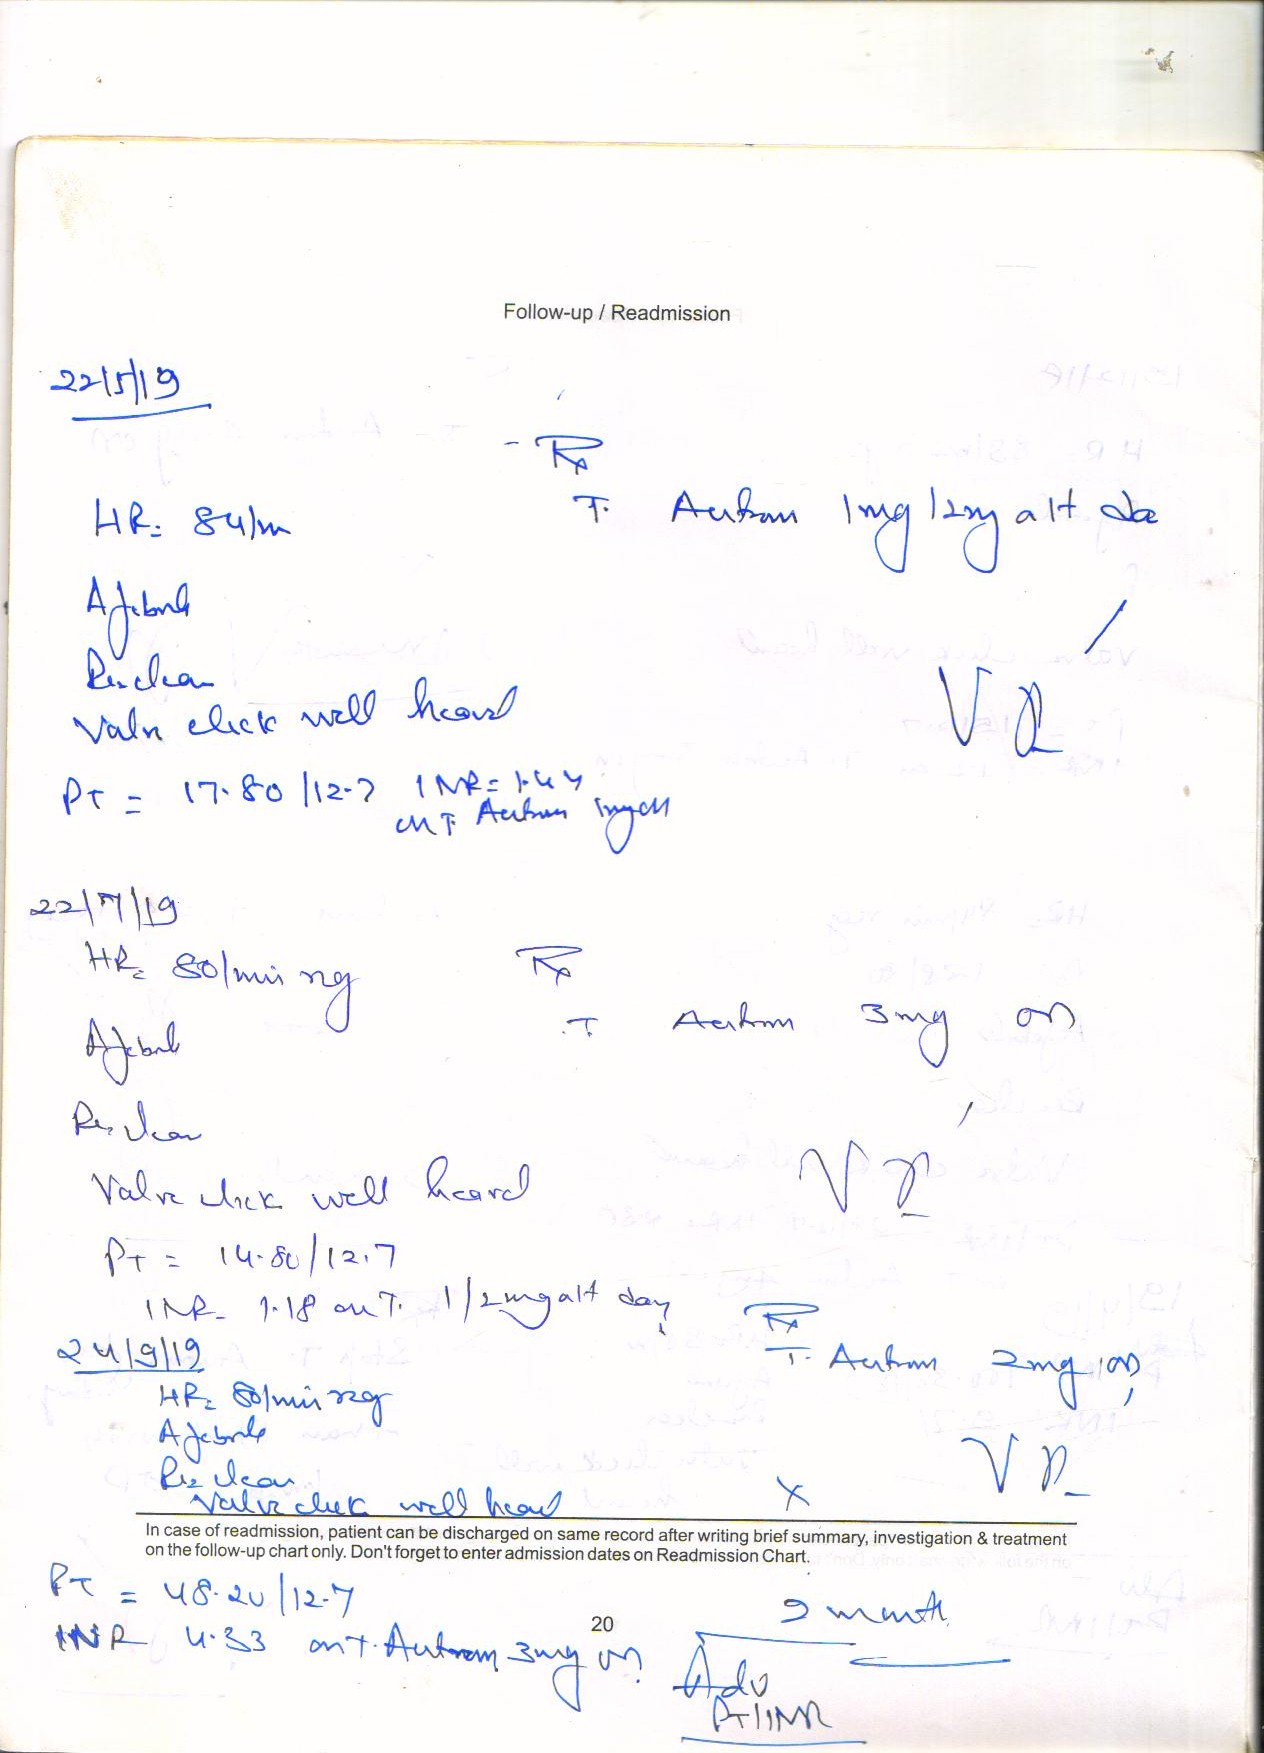 Follow-up / Readmission
22/5/19
Rx
HR= 84/m
T. Acitrom 1mg/2mg alt da
Afebrile
R= clear
Valve click well heard
PT = 17.80/12.7 INR= 1.44
on T. Acitrom 1mg OD
22/7/19
HR= 80/min reg
Rx
T Acitrom 3mg OD
Afebrile
R= clear
Valve click well heard
PT = 14.80/12.7
INR- 1.18 on T. 1/2mg alt day
Rx
24/9/19
T. Acitrom 2mg OD
HR= 80/min reg
Afebrile
R= clear
Valve click well heard
In case of readmission, patient can be discharged on same record after writing brief summary, investigation & treatment
on the follow-up chart only. Don't forget to enter admission dates on Readmission Chart.
PT = 48.20/12.7
20
2 month
INR 4.33 on T. Acitrom 3mg OD
Adv
PT/INR